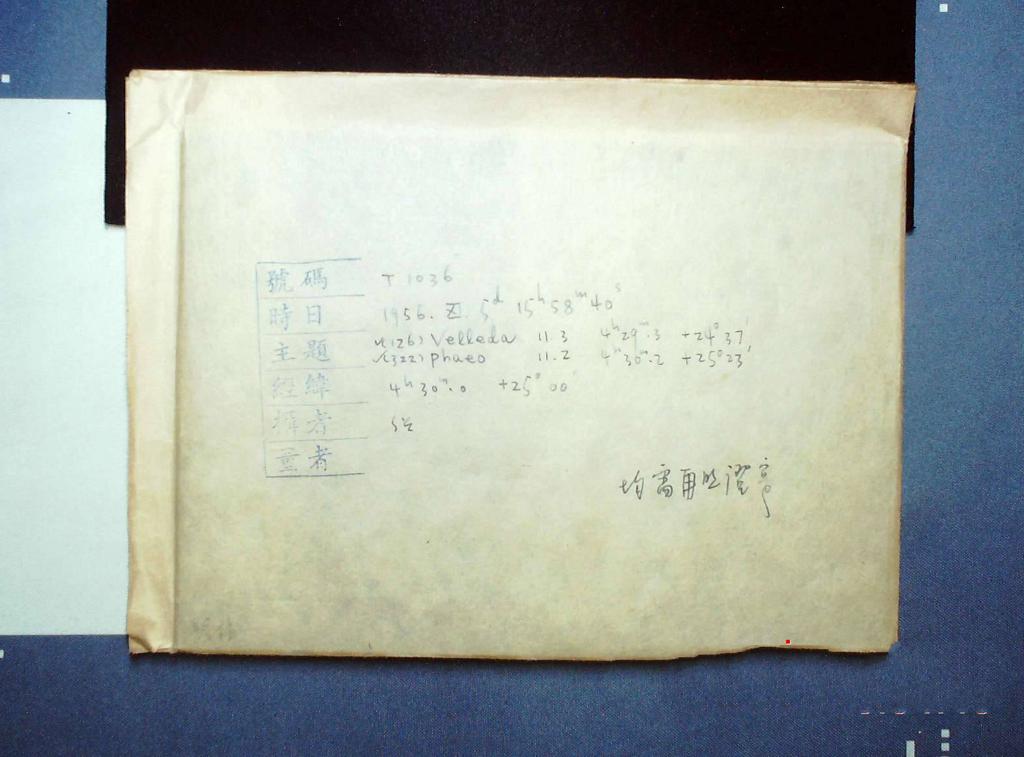 號碼 T 1036
時日 1956. XI. 5ᵈ 15ʰ 58ᵐ 40ˢ
主題 √(126) Velleda 11.3 4ʰ 29ᵐ.3 +24° 37'
√(322) phaeo 11.2 4ʰ 30ᵐ.2 +25° 23'
經緯 4ʰ 30ᵐ.0 +25° 00'
攝者
量者
均需再